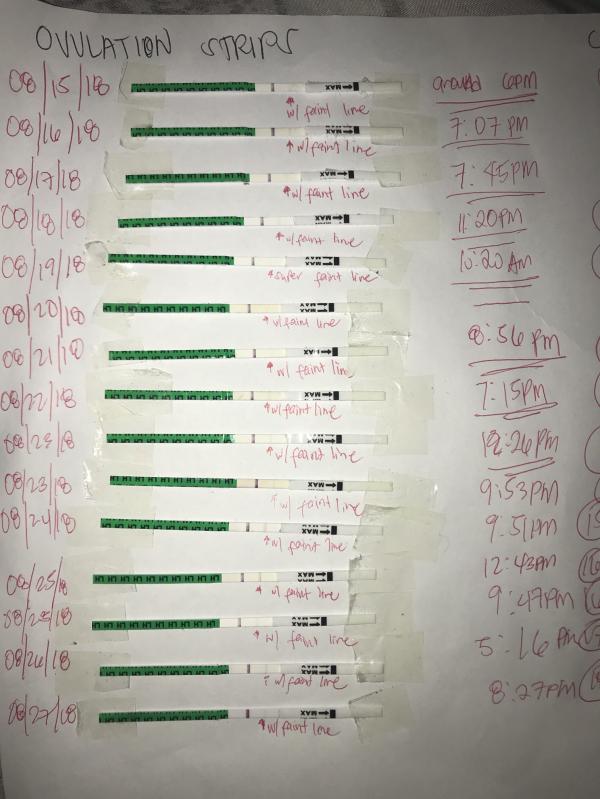 OVULATION STRIPS
08/15/18 MAX around 6PM
w/ faint line
08/16/18 MAX 7:07 PM
w/ faint line
08/17/18 MAX 7:45PM
w/ faint line
08/18/18 MAX 11:20PM
w/ faint line
08/19/18 MAX 10:20AM
super faint line
08/20/18 MAX
w/ faint line
8:56 PM
08/21/18 MAX
w/ faint line
08/22/18 MAX 7:15PM
w/ faint line
08/23/18 MAX 12:26PM
w/ faint line
08/23/18 MAX 9:53PM
w/ faint line
08/24/18 MAX 9:51PM
w/ faint line
08/25/18 MAX 12:43PM
w/ faint line
08/25/18 MAX 9:47PM
w/ faint line
08/26/18 MAX 5:16 PM
w/ faint line
08/27/18 MAX 8:27PM
w/ faint line